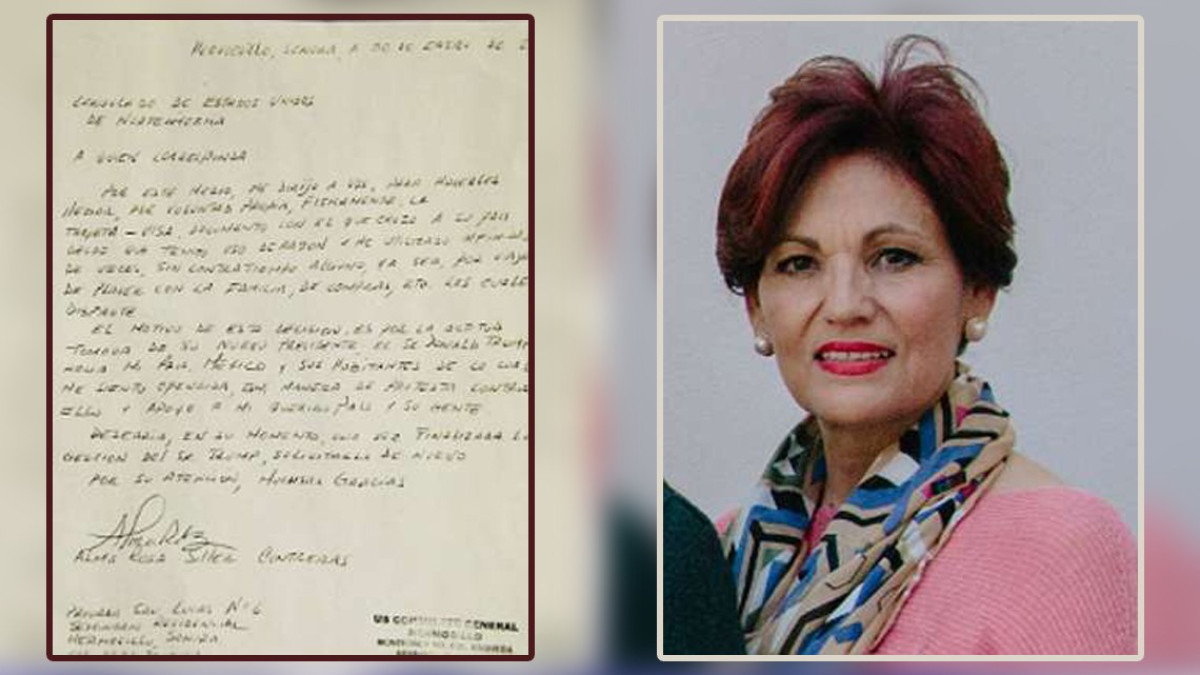 HERMOSILLO, SONORA, A 30 DE ENERO DE 2
CONSULADO DE ESTADOS UNIDOS
DE NORTEAMERICA
A QUIEN CORRESPONDA
POR ESTE MEDIO, ME DIRIJO A UDS, PARA HACERLES
LLEGAR, POR VOLUNTAD PROPIA, FIRMEMENTE, LA
TARJETA-VISA, DOCUMENTO CON EL QUE CRUZO A SU PAIS
DESDE QUE TENGO USO DE RAZON Y HE UTILIZADO
DE VECES, SIN CONTRATIEMPO ALGUNO, YA SEA, POR VIAJE
DE PLACER CON LA FAMILIA, DE COMPRAS, ETC. LES
DISFRUTE
EL MOTIVO DE ESTA DECISION, ES POR LA ACTITUD
TOMADA DE SU NUEVO PRESIDENTE, EL SR DONALD TRUMP
HACIA MI PAIS, MEXICO Y SUS HABITANTES DE LO CUAL
ME SIENTO OFENDIDA, MANERA DE PROTESTA CONTRA
ELLO Y APOYO A MI QUERIDO PAIS Y SU GENTE.
DESEARIA, EN SU MOMENTO, UNA VEZ FINALIZADA LA
GESTION DEL SR TRUMP, SOLICITARLA DE NUEVO
POR SU ATENCION, MUCHAS GRACIAS
ALMA ROSA SILLER CONTRERAS
PRIVADA SAN LUCAS Nº 6
RESIDENCIAL
HERMOSILLO, SONORA
US CONSULATE GENERAL
HERMOSILLO